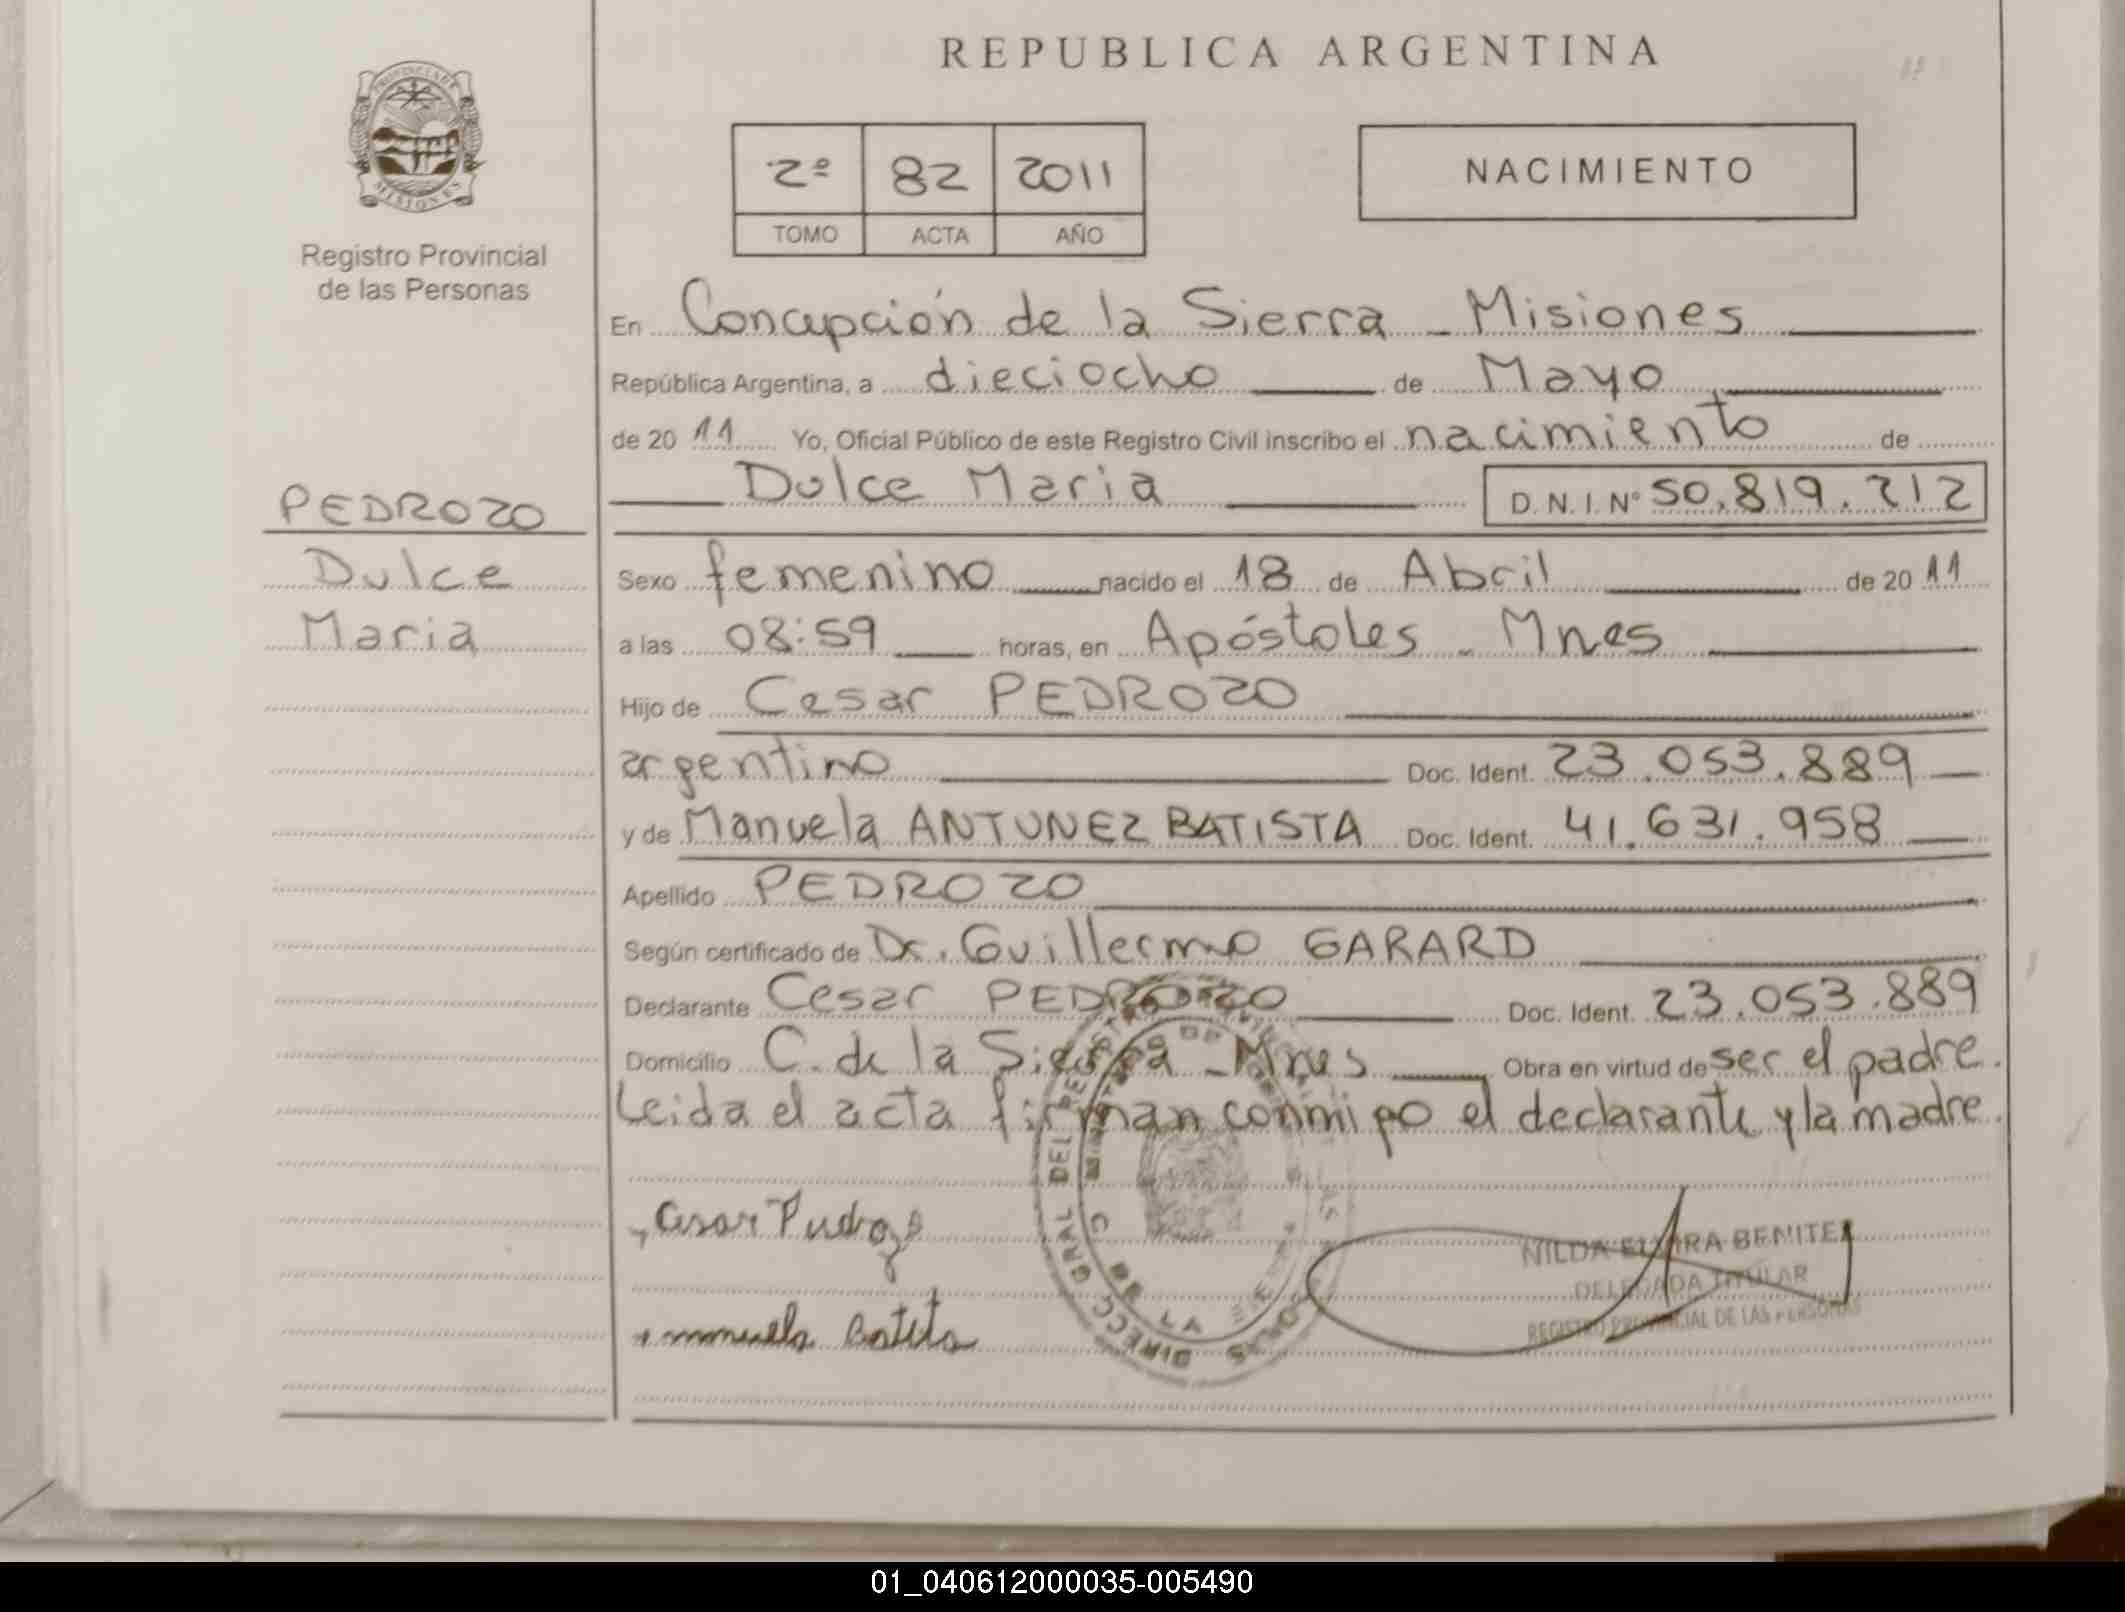 REPUBLICA ARGENTINA
PROVINCIA DE
MISIONES
Registro Provincial
de las Personas
2º 82 2011
TOMO ACTA AÑO
NACIMIENTO
En Concepción de la Sierra - Misiones
República Argentina, a dieciocho de Mayo
de 20 11 Yo, Oficial Público de este Registro Civil inscribo el nacimiento de
Dulce Maria D.N.I. Nº 50.819.212
PEDROZO
Dulce
Maria
Sexo femenino nacido el 18 de Abril de 20 11
a las 08:59 horas, en Apóstoles - Mnes
Hijo de Cesar PEDROZO
argentino Doc. Ident. 23.053.889
y de Manuela ANTUNEZ BATISTA Doc. Ident. 41.631.958
Apellido PEDROZO
Según certificado de Dr. Guillermo GARARD
Declarante Cesar PEDROZO Doc. Ident. 23.053.889
Domicilio C. de la Sierra - Mnes Obra en virtud de ser el padre.
Leida el acta firman conmigo el declarante y la madre.
Cesar Pedrozo
NILDA ELVIRA BENITEZ
DELEGADA TITULAR
REGISTRO PROVINCIAL DE LAS PERSONAS
manuela Batista
DIRECC GRAL DEL
01_040612000035-005490